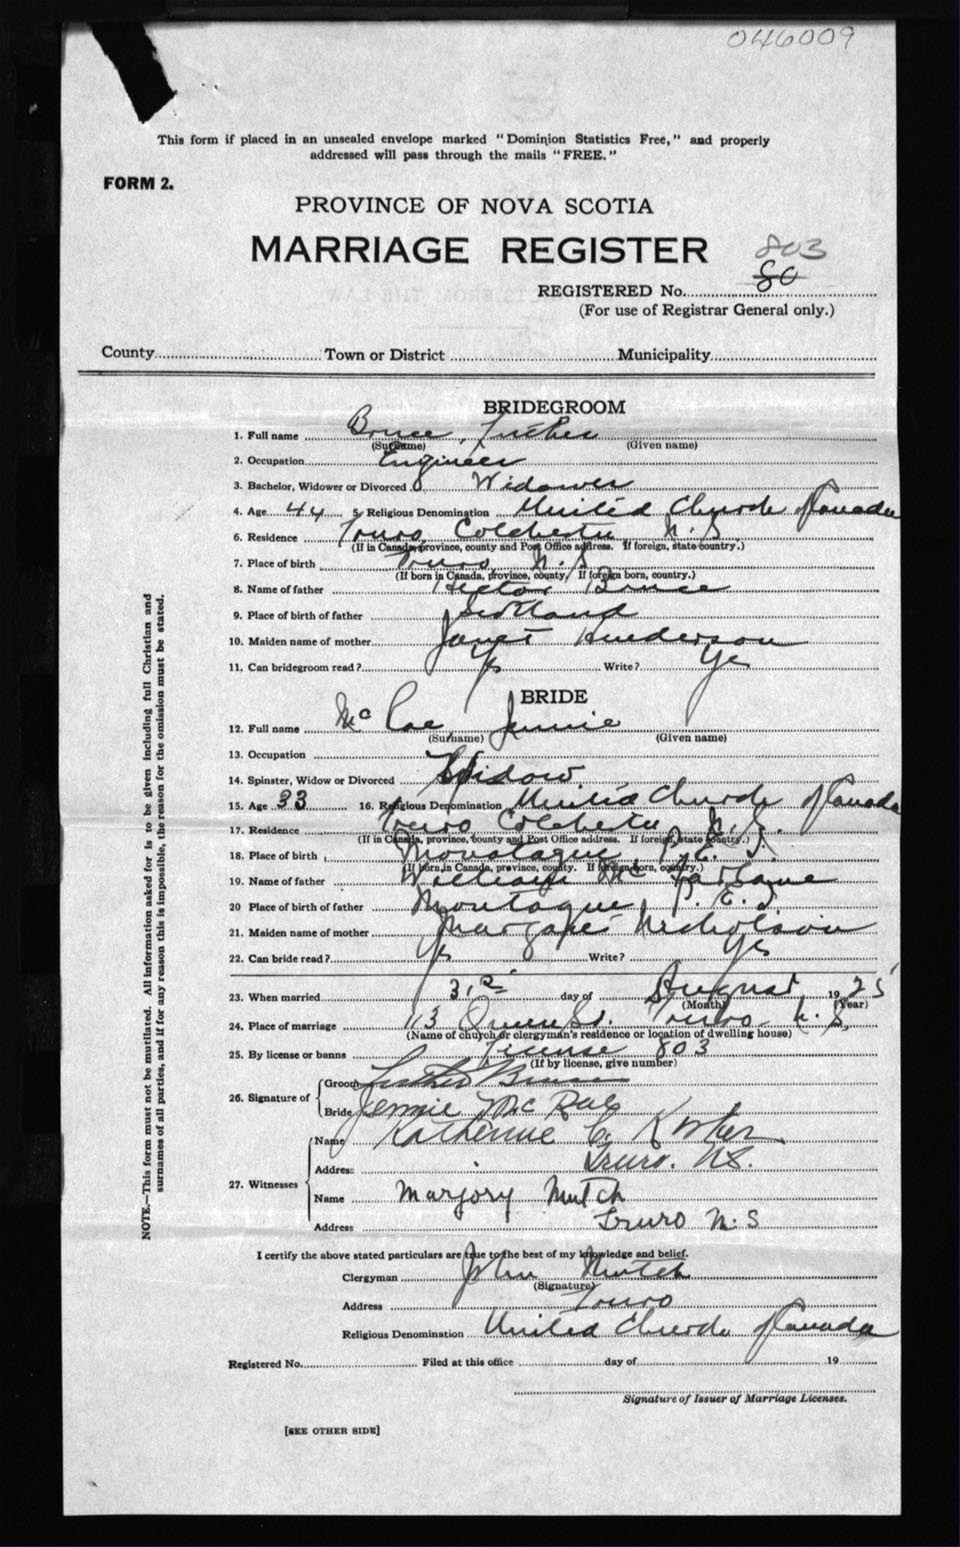 046009
This form if placed in an unsealed envelope marked "Dominion Statistics Free," and properly
addressed will pass through the mails "FREE."
FORM 2.
PROVINCE OF NOVA SCOTIA
MARRIAGE REGISTER
803
REGISTERED No. 80
(For use of Registrar General only.)
County Town or District Municipality
BRIDEGROOM
1. Full name Bruce, Luther
(Surname) (Given name)
2. Occupation Engineer
3. Bachelor, Widower or Divorced Widower
4. Age 44 5. Religious Denomination United Church of Canada
6. Residence Truro Colchester N. S.
(If in Canada, province, county and Post Office address. If foreign, state country.)
7. Place of birth Truro N. S.
(If born in Canada, province, county. If foreign born, country.)
8. Name of father Hector Bruce
9. Place of birth of father Scotland
10. Maiden name of mother Janet Henderson
11. Can bridegroom read? Yes Write? Yes
BRIDE
12. Full name McRae Jennie
(Surname) (Given name)
13. Occupation
14. Spinster, Widow or Divorced Widow
15. Age 33 16. Religious Denomination United Church of Canada
17. Residence Truro Colchester N. S.
(If in Canada, province, county and Post Office address. If foreign, state country.)
18. Place of birth Montague P. E. I.
(If born in Canada, province, county. If foreign born, country.)
19. Name of father William McFarlane
20 Place of birth of father Montague P. E. I.
21. Maiden name of mother Margaret Nicholson
22. Can bride read? Yes Write? Yes
23. When married day of August 1925
(Month) (Year)
24. Place of marriage 13 Queen St. Truro N. S.
(Name of church or clergyman's residence or location of dwelling house)
25. By license or banns License 803
(If by license, give number)
26. Signature of Groom Luther Bruce
Bride Jennie McRae
27. Witnesses Name Katherine
Address Truro. N.S.
Name Marjory Mutch
Address Truro N.S
I certify the above stated particulars are true to the best of my knowledge and belief.
Clergyman John Mutch
(Signature)
Address Truro
Religious Denomination United Church of Canada
Registered No. Filed at this office day of 19
Signature of Issuer of Marriage Licenses.
[SEE OTHER SIDE]
NOTE.—This form must not be mutilated. All information asked for is to be given including full Christian and
surnames of all parties, and if for any reason this is impossible, the reason for the omission must be stated.